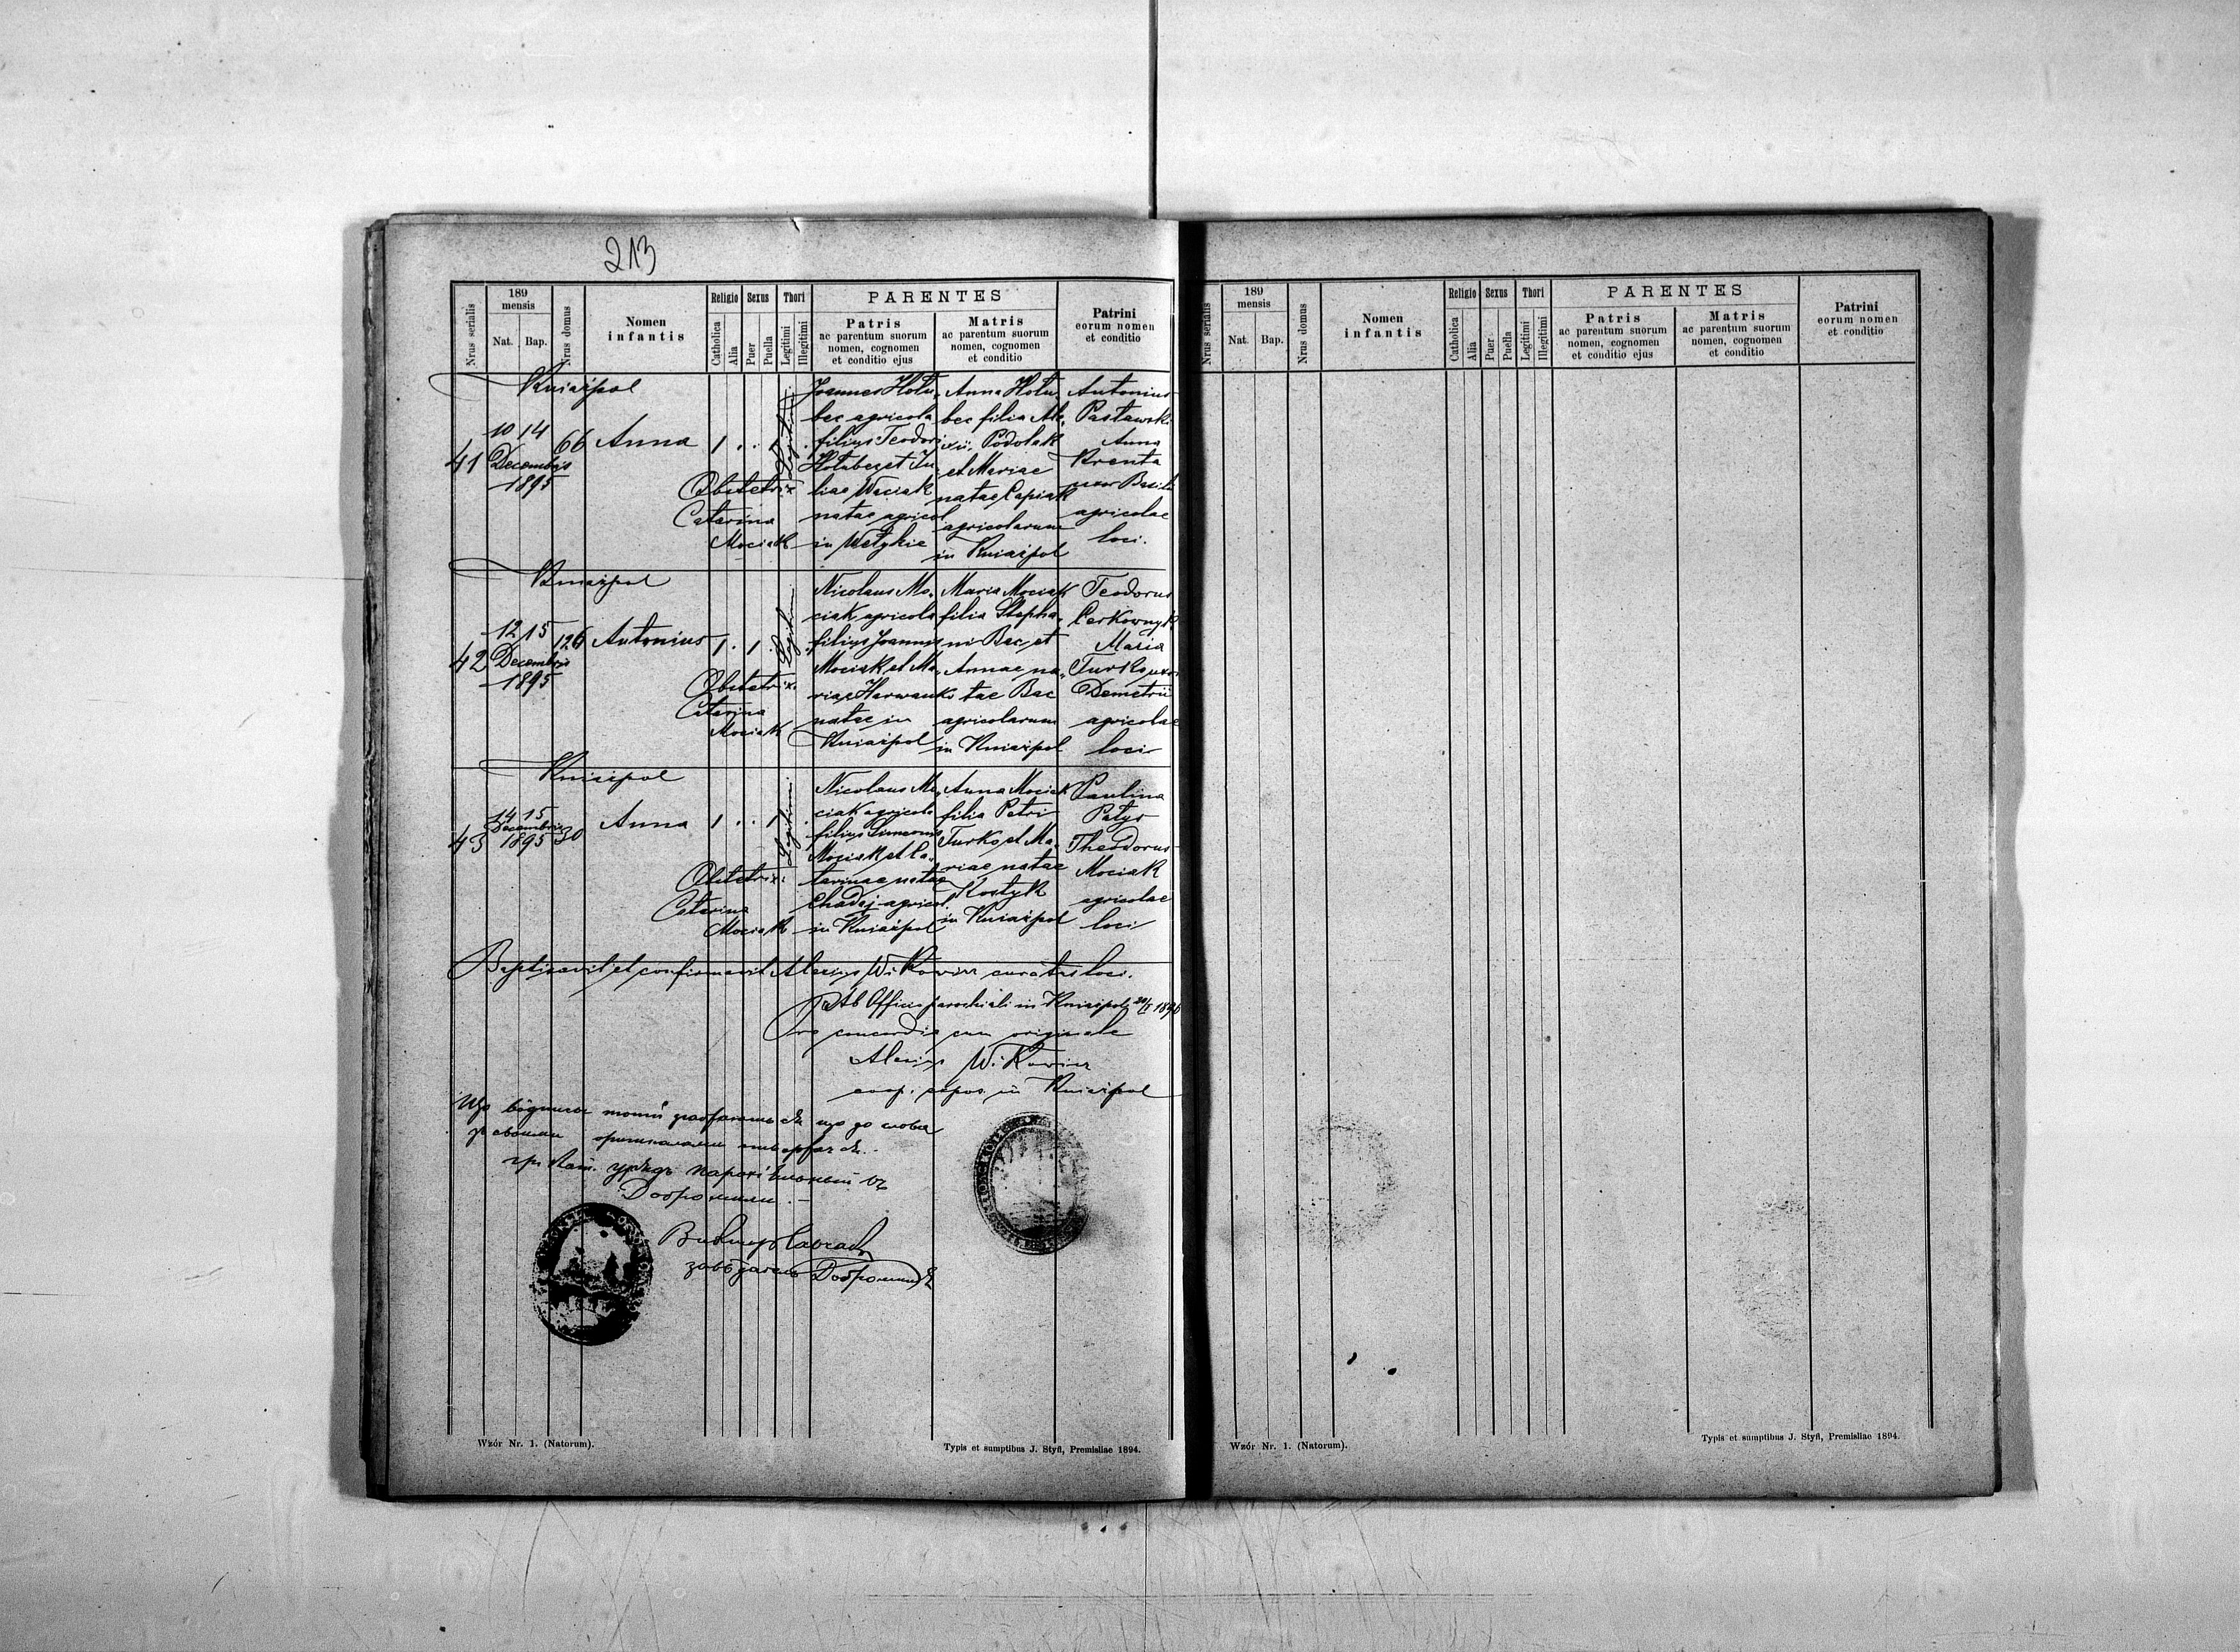 213
Nrus serialis
189
mensis
Nat.
Bap.
Nrus domus
Nomen
infantis
Religio
Catholica
Alia
Sexus
Puer
Puella
Thori
Legitimi
Illegitimi
PARENTES
Patris
ac parentum suorum
nomen, cognomen
et conditio ejus
Matris
ac parentum suorum
nomen, cognomen
et conditio
Patrini
eorum nomen
et conditio
Kniażpol
41
10 14
Decembris
1895
66
Anna
1 . . 1
Legitimi
Obstetrix
Catarina
Mociak
Joannes Hołu-
bec agricola
filius Teodori
Hołubec et Ju
liae Waciak
natae agricol
in Wełykie
Anna Hołu-
bec filia Ale-
xii Podolak
et Mariae
natae Capiak
agricolarum
in Kniażpol
Antonius
Pasławski
Anna
Krenta
uxor Basilii
agricolae
loci.
Kniażpol
42
12 15
Decembris
1895
126
Antonius
1 . 1 .
Legitimi
Obstetrix
Catarina
Mociak
Nicolaus Mo-
ciak agricola
filius Joannis
Mociak et Ma-
riae Harwanko
natae in
Kniażpol
Maria Mociak
filia Stepha-
ni Bac, et
Annae na-
tae Bac
agricolarum
in Kniażpol
Teodorus
Cerkownyk
Maria
Turko uxor
Demetrii
agricolae
loci
Kniażpol
43
14 15
Decembris
1895
30
Anna
1 . . 1
Legitimi
Obstetrix
Catarina
Mociak
Nicolaus Mo-
ciak agricola
filius Simeonis
Mociak et Ca-
tarinae natae
Chadaj agricol.
in Kniażpol
Anna Mociak
filia Petri
Turko et Ma-
riae natae
Kostyk
in Kniażpol
Paulina
Petyr
Theodorus
Mociak
agricolae
loci
Baptisavit et confirmavit Alexius Wikowicz curatus loci.
Ab Officio parochiali in Kniażpol 1896
Pro concordia cum originale
Alexius Wikowicz
in Kniażpol
що до слова
Добромили
Добромиля
Wzór Nr. 1. (Natorum).
Typis et sumptibus J. Styfi, Premisliae 1894.
Nrus serialis
189
mensis
Nat.
Bap.
Nrus domus
Nomen
infantis
Religio
Catholica
Alia
Sexus
Puer
Puella
Thori
Legitimi
Illegitimi
PARENTES
Patris
ac parentum suorum
nomen, cognomen
et conditio ejus
Matris
ac parentum suorum
nomen, cognomen
et conditio
Patrini
eorum nomen
et conditio
Wzór Nr. 1. (Natorum).
Typis et sumptibus J. Styfi, Premisliae 1894.